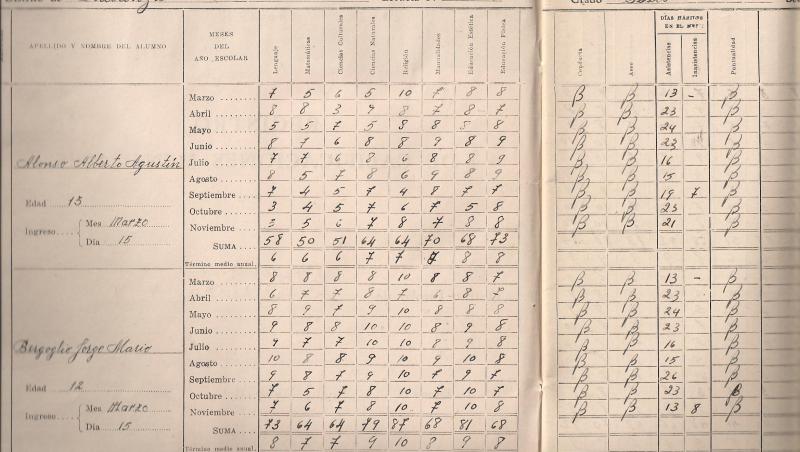 APELLIDO Y NOMBRE DEL ALUMNO MESES DEL AÑO ESCOLAR Lenguaje Matemáticas Ciencias Culturales Ciencias Naturales Religión Manualidades Educación Estética Educación Física Conducta Aseo DÍAS HÁBILES EN EL MES: Asistencias Inasistencias Puntualidad
Marzo ........ 7 5 6 5 10 7 8 8 B B 13 - B
Abril ........ 8 8 3 9 8 7 8 7 B B 23 B
Mayo ........ 5 5 7 5 8 8 5 8 B B 24 B
Junio ........ 8 7 6 8 8 9 8 9 B B 23 B
Alonso Alberto Agustín Julio ........ 7 7 6 8 6 8 8 9 B B 16 B
Agosto ........ 8 5 7 8 6 9 8 9 B B 15 B
Septiembre ..... 7 4 5 7 4 8 7 7 B B 19 7 B
Edad 13 Octubre ...... 3 4 5 7 6 7 5 8 B B 23 B
Ingreso Mes Marzo Noviembre .... 5 6 7 8 7 8 8 B B 21 B
Día 15 SUMA ... 58 50 51 64 64 70 68 73
Término medio anual. 6 6 6 7 7 7 8 8
Marzo ........ 8 8 8 8 10 8 8 7 B B 13 - B
Abril ........ 6 7 7 8 7 6 8 7 B B 23 B
Mayo ........ 8 9 7 9 10 8 8 8 B B 24 B
Junio ........ 9 8 8 10 10 8 9 8 B B 23 B
Bergoglio Jorge Mario Julio ........ 9 7 7 10 10 8 9 8 B B 16 B
Agosto ........ 10 8 8 9 10 9 10 8 B B 15 B
Edad 12 Septiembre .... 9 8 7 9 10 7 9 7 B B 26 B
Octubre ...... 7 5 7 8 10 7 10 7 B B 23 B
Ingreso Mes Marzo Noviembre .... 7 6 7 8 10 7 10 8 B B 13 8 B
Día 15 SUMA ... 73 64 64 79 87 68 81 68
Término medio anual. 8 7 7 9 10 8 9 8